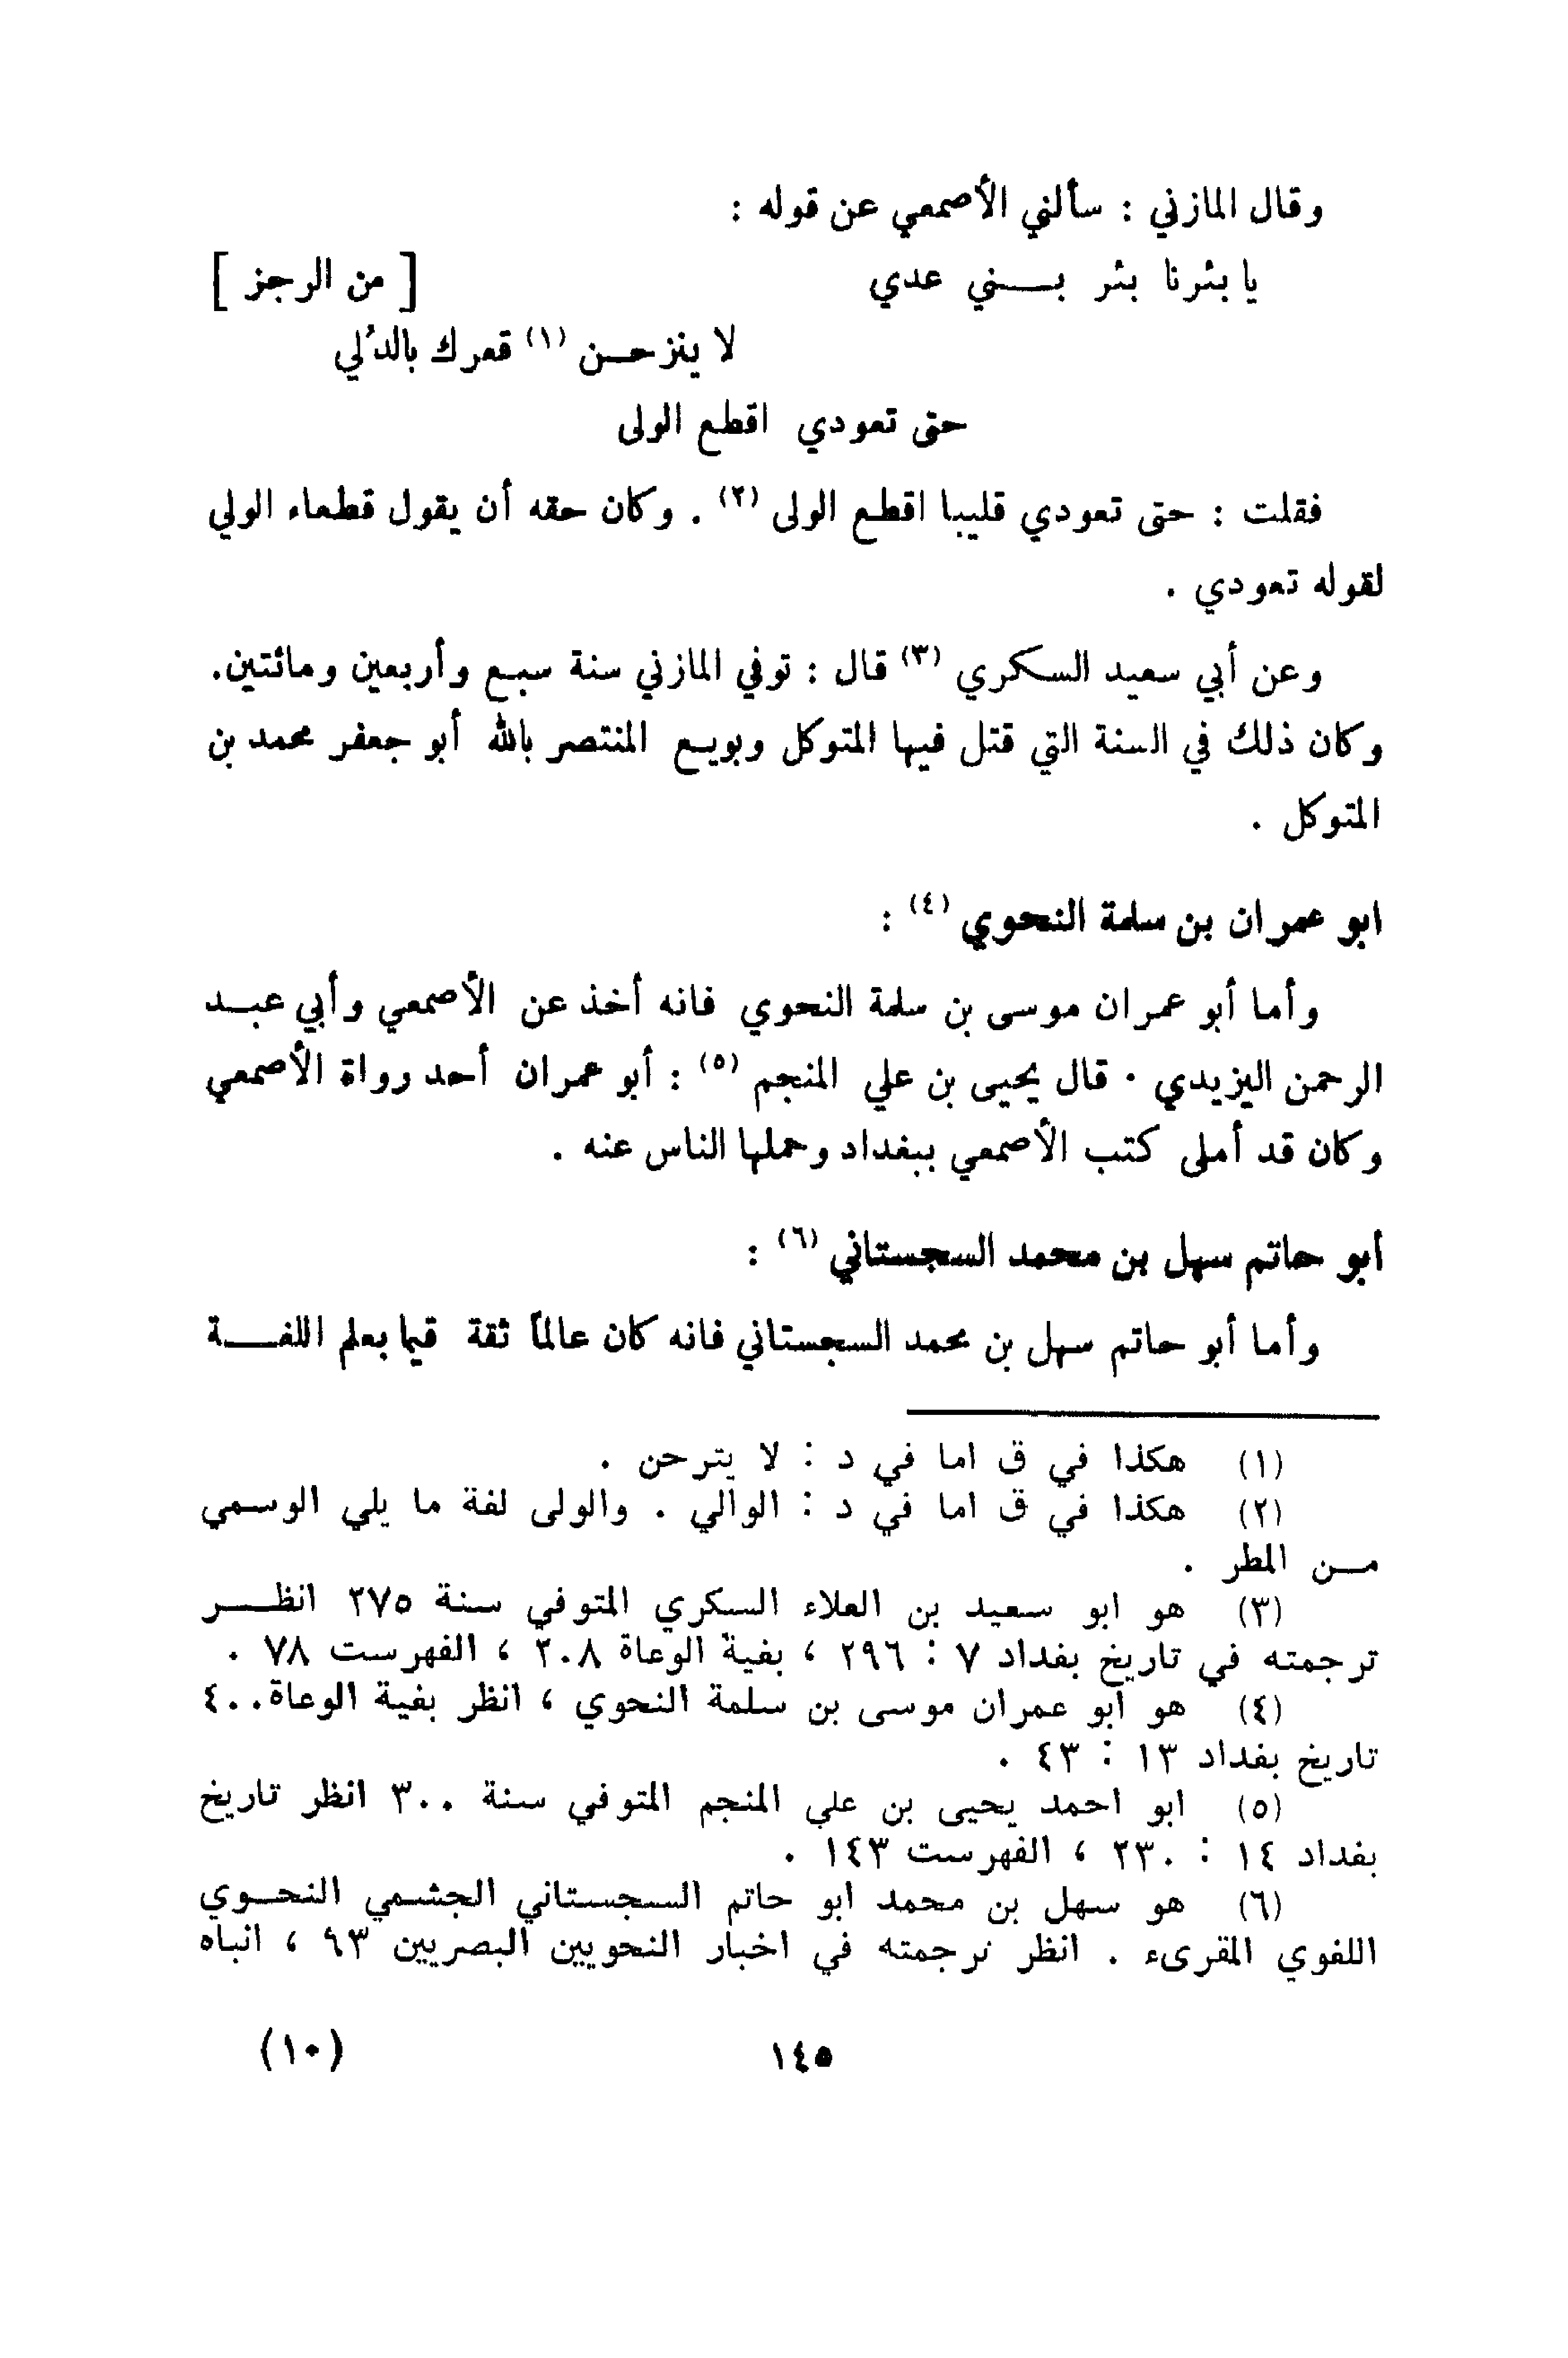 وقال المازني : سألني الأصمعي عن قوله :
يا بئرنا بئر بـــني عدي [ من الرجز ]
لا ينزحـن (١) قعرك بالدُلي
حتى تعودي اقطع الولى
فقلت : حتى تعودي قليبا اقطع الولى (٢) . وكان حقه أن يقول قطعاء الولي
لقوله تعودي .
وعن أبي سعيد السكري (٣) قال : توفي المازني سنة سبع وأربعين ومائتين.
وكان ذلك في السنة التي قتل فيها المتوكل وبويع المنتصر بالله أبو جعفر محمد بن
المتوكل .
ابو عمران بن سلمة النحوي (٤) :
وأما أبو عمران موسى بن سلمة النحوي فانه أخذ عن الأصمعي وأبي عبـد
الرحمن اليزيدي . قال يحيى بن علي المنجم (٥) : أبو عمران أحد رواة الأصمعي
وكان قد أملى كتب الأصمعي ببغداد وحملها الناس عنه .
أبو حاتم سهل بن محمد السجستاني (٦) :
وأما أبو حاتم سهل بن محمد السجستاني فانه كان عالماً ثقة قيما بعلم اللغـــة
(١) هكذا في ق اما في د : لا يترحن .
(٢) هكذا في ق اما في د : الوالي . والولى لغة ما يلي الوسمي
مـن المطر .
(٣) هو ابو سعيد بن العلاء السكري المتوفي سنة ٢٧٥ انظـــر
ترجمته في تاريخ بغداد ٧ : ٢٩٦ ، بغية الوعاة ٢٠٨ ، الفهرست ٧٨ .
(٤) هو ابو عمران موسى بن سلمة النحوي ، انظر بغية الوعاة ٤٠٠
تاريخ بغداد ١٣ : ٤٣ .
(٥) ابو احمد يحيى بن علي المنجم المتوفي سنة ٣٠٠ انظر تاريخ
بغداد ١٤ : ٢٣٠ ، الفهرست ١٤٣ .
(٦) هو سهل بن محمد ابو حاتم السجستاني الجشمي النحـوي
اللغوي المقرىء . انظر ترجمته في اخبار النحويين البصريين ٩٣ ، انباه
١٤٥ (١٠)